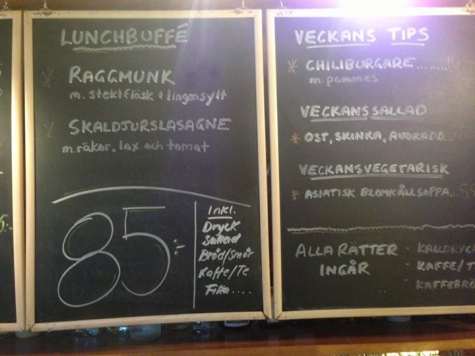 LUNCHBUFFÉ
* RAGGMUNK
m. stekt fläsk + lingonsylt
* SKALDJURSLASAGNE
m. räkor, lax och tomat
85:-
Inkl.
Dryck
Sallad
Bröd/Smör
Kaffe/Te
Fika....
VECKANS TIPS
* CHILIBURGARE........
m. pommes
VECKANS SALLAD
* OST, SKINKA, AVOKADO...
VECKANS VEGETARISK
* ASIATISK BLOMKÅLSOPPA
ALLA RÄTTER
INGÅR
- KALLDRYCK
- KAFFE/T
- KAFFEBRÖ